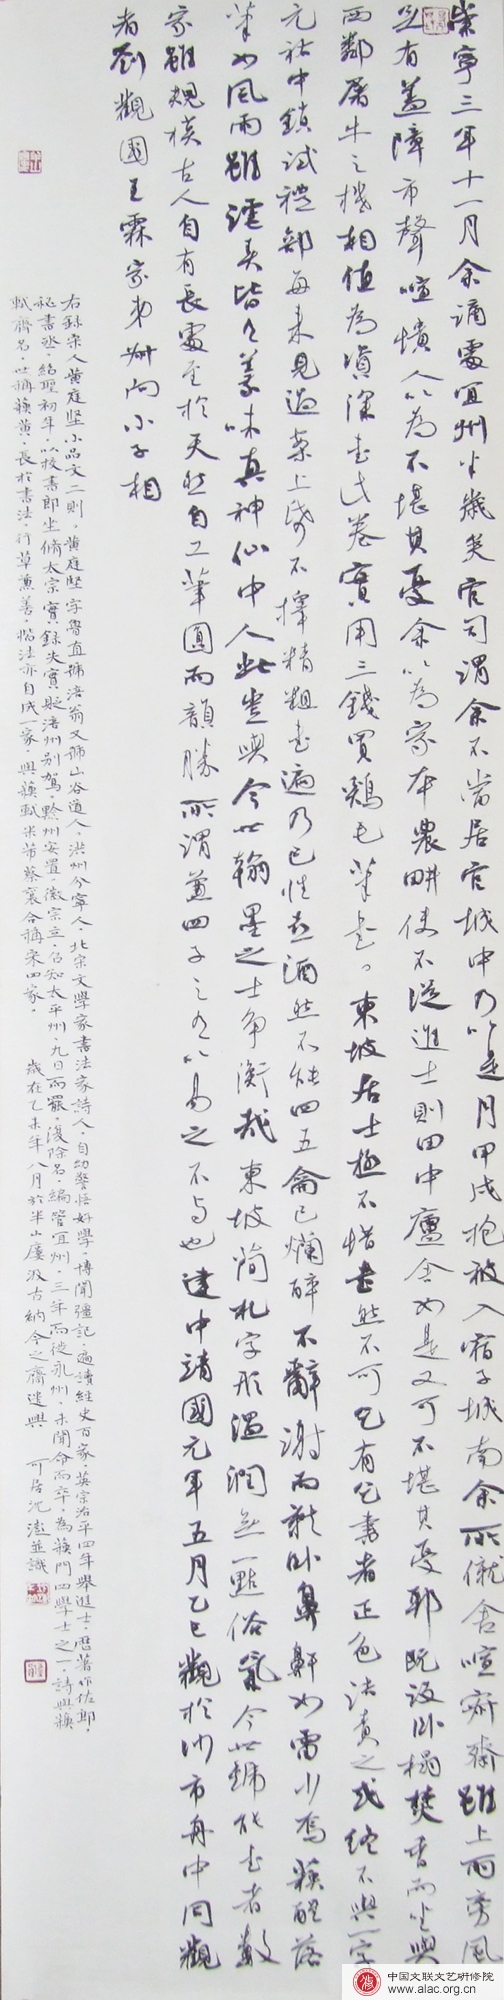 崇寧三年十一月余謫處宜州半歲矣官司謂余不當居官城中乃以是月甲戌抱被入宿子城南余所僦舍喧寂齋雖上雨旁風
無有蓋障市聲喧憒人以為不堪其憂余以為家本農畊使不從進士則田中廬舍如是又可不堪其憂耶既設臥榻焚香而坐與
西鄰屠牛之機相值為資深書此卷實用三錢買雞毛筆書。東坡居士極不惜書然不可乞有乞書者正色詰責之或終不與一字
元祐中鎖試禮部每來見過案上紙不擇精粗書遍乃已性喜酒然不能四五龠已爛醉不辭謝而就臥鼻鼾如雷少焉蘇醒落
筆如風雨雖謔弄皆有義味真神仙中人此豈與今世翰墨之士爭衡哉東坡簡札字形溫潤無一點俗氣今世號能書者數
家雖規模古人自有長處至於天然自工筆圓而韻勝所謂兼四子之有以易之不與也建中靖國元年五月乙巳觀於沙市舟中同觀
者劉觀國王霖家弟叔向小子相
右錄宋人黄庭堅小品文二則。黄庭堅字魯直號涪翁又號山谷道人、洪州分寧人、北宋文學家書法家詩人、自幼警悟好學、博聞彊記、遍讀經史百家、英宗治平四年舉進士、歷著作佐郎、
秘書丞、紹聖初年、以校書郎坐修太宗實錄失實貶涪州别駕、黔州安置、徽宗立、召知太平州、九日而罷、復除名、編管宜州、三年而徙永州、未聞命而卒、為蘇門四學士之一、詩與蘇
軾齊名、世稱蘇黄、長於書法、行草兼善、楷法亦自成一家、與蘇軾米芾蔡襄合稱宋四家。 歲在乙未年八月於半山廔汲古納今之齋遣興 可居沈澎並識
中国文联文艺研修院
www.alac.org.cn